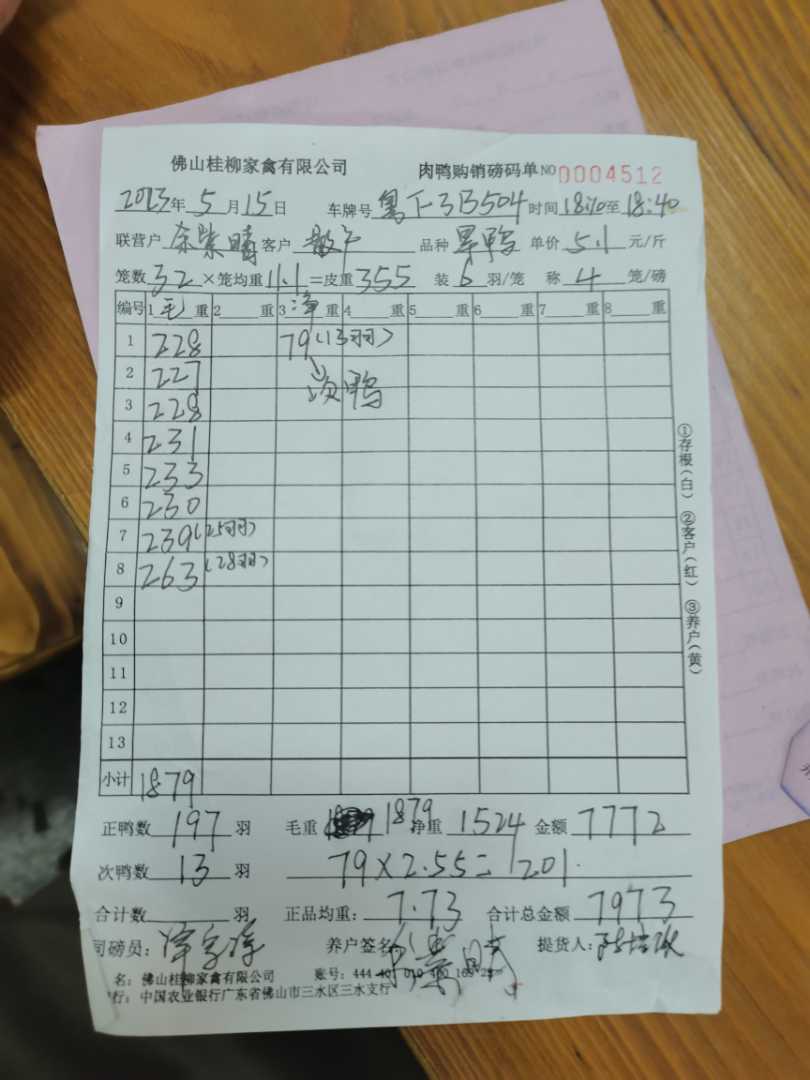 佛山桂柳家禽有限公司 肉鸭购销磅码单 NO 0004512
2023年5月15日 车牌号 粤 504 时间 至18:40
联营户 客户 散户 品种 旱鸭 单价 5.1 元/斤
笼数 32 ×笼均重 11.1 =皮重 355 装 6 羽/笼 称 4 笼/磅
编号 1 毛 重 2 重 3 净 重 4 重 5 重 6 重 7 重 8 重
1 228 79(13羽)
2 227 次鸭
3 228
4 231
5 233
6 230
7 239(25羽)
8 263(28羽)
9
10
11
12
13
小计 1879
正鸭数 197 羽 毛重 1879 净重 1524 金额 7772
次鸭数 13 羽 79×2.55=201.
合计数 羽 正品均重: 7.73 合计总金额 7973
司磅员: 养户签名 提货人:
名: 佛山桂柳家禽有限公司 账号: 444
行: 中国农业银行广东省佛山市三水区三水支行
①存根(白) ②客户(红) ③养户(黄)